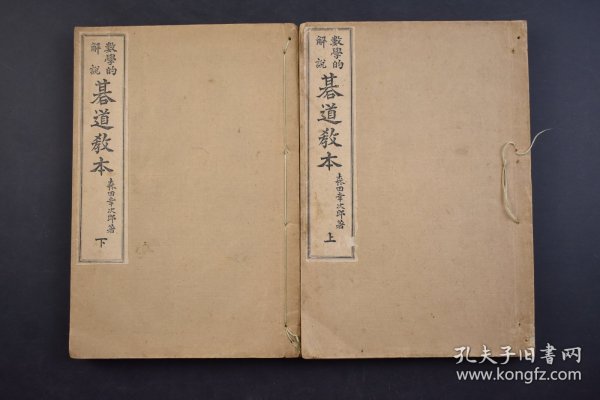 數學的
解説
碁道教本
森田幸次郎著
上
數學的
解説
碁道教本
森田幸次郎著
下
孔夫子旧书网
www.kongfz.com